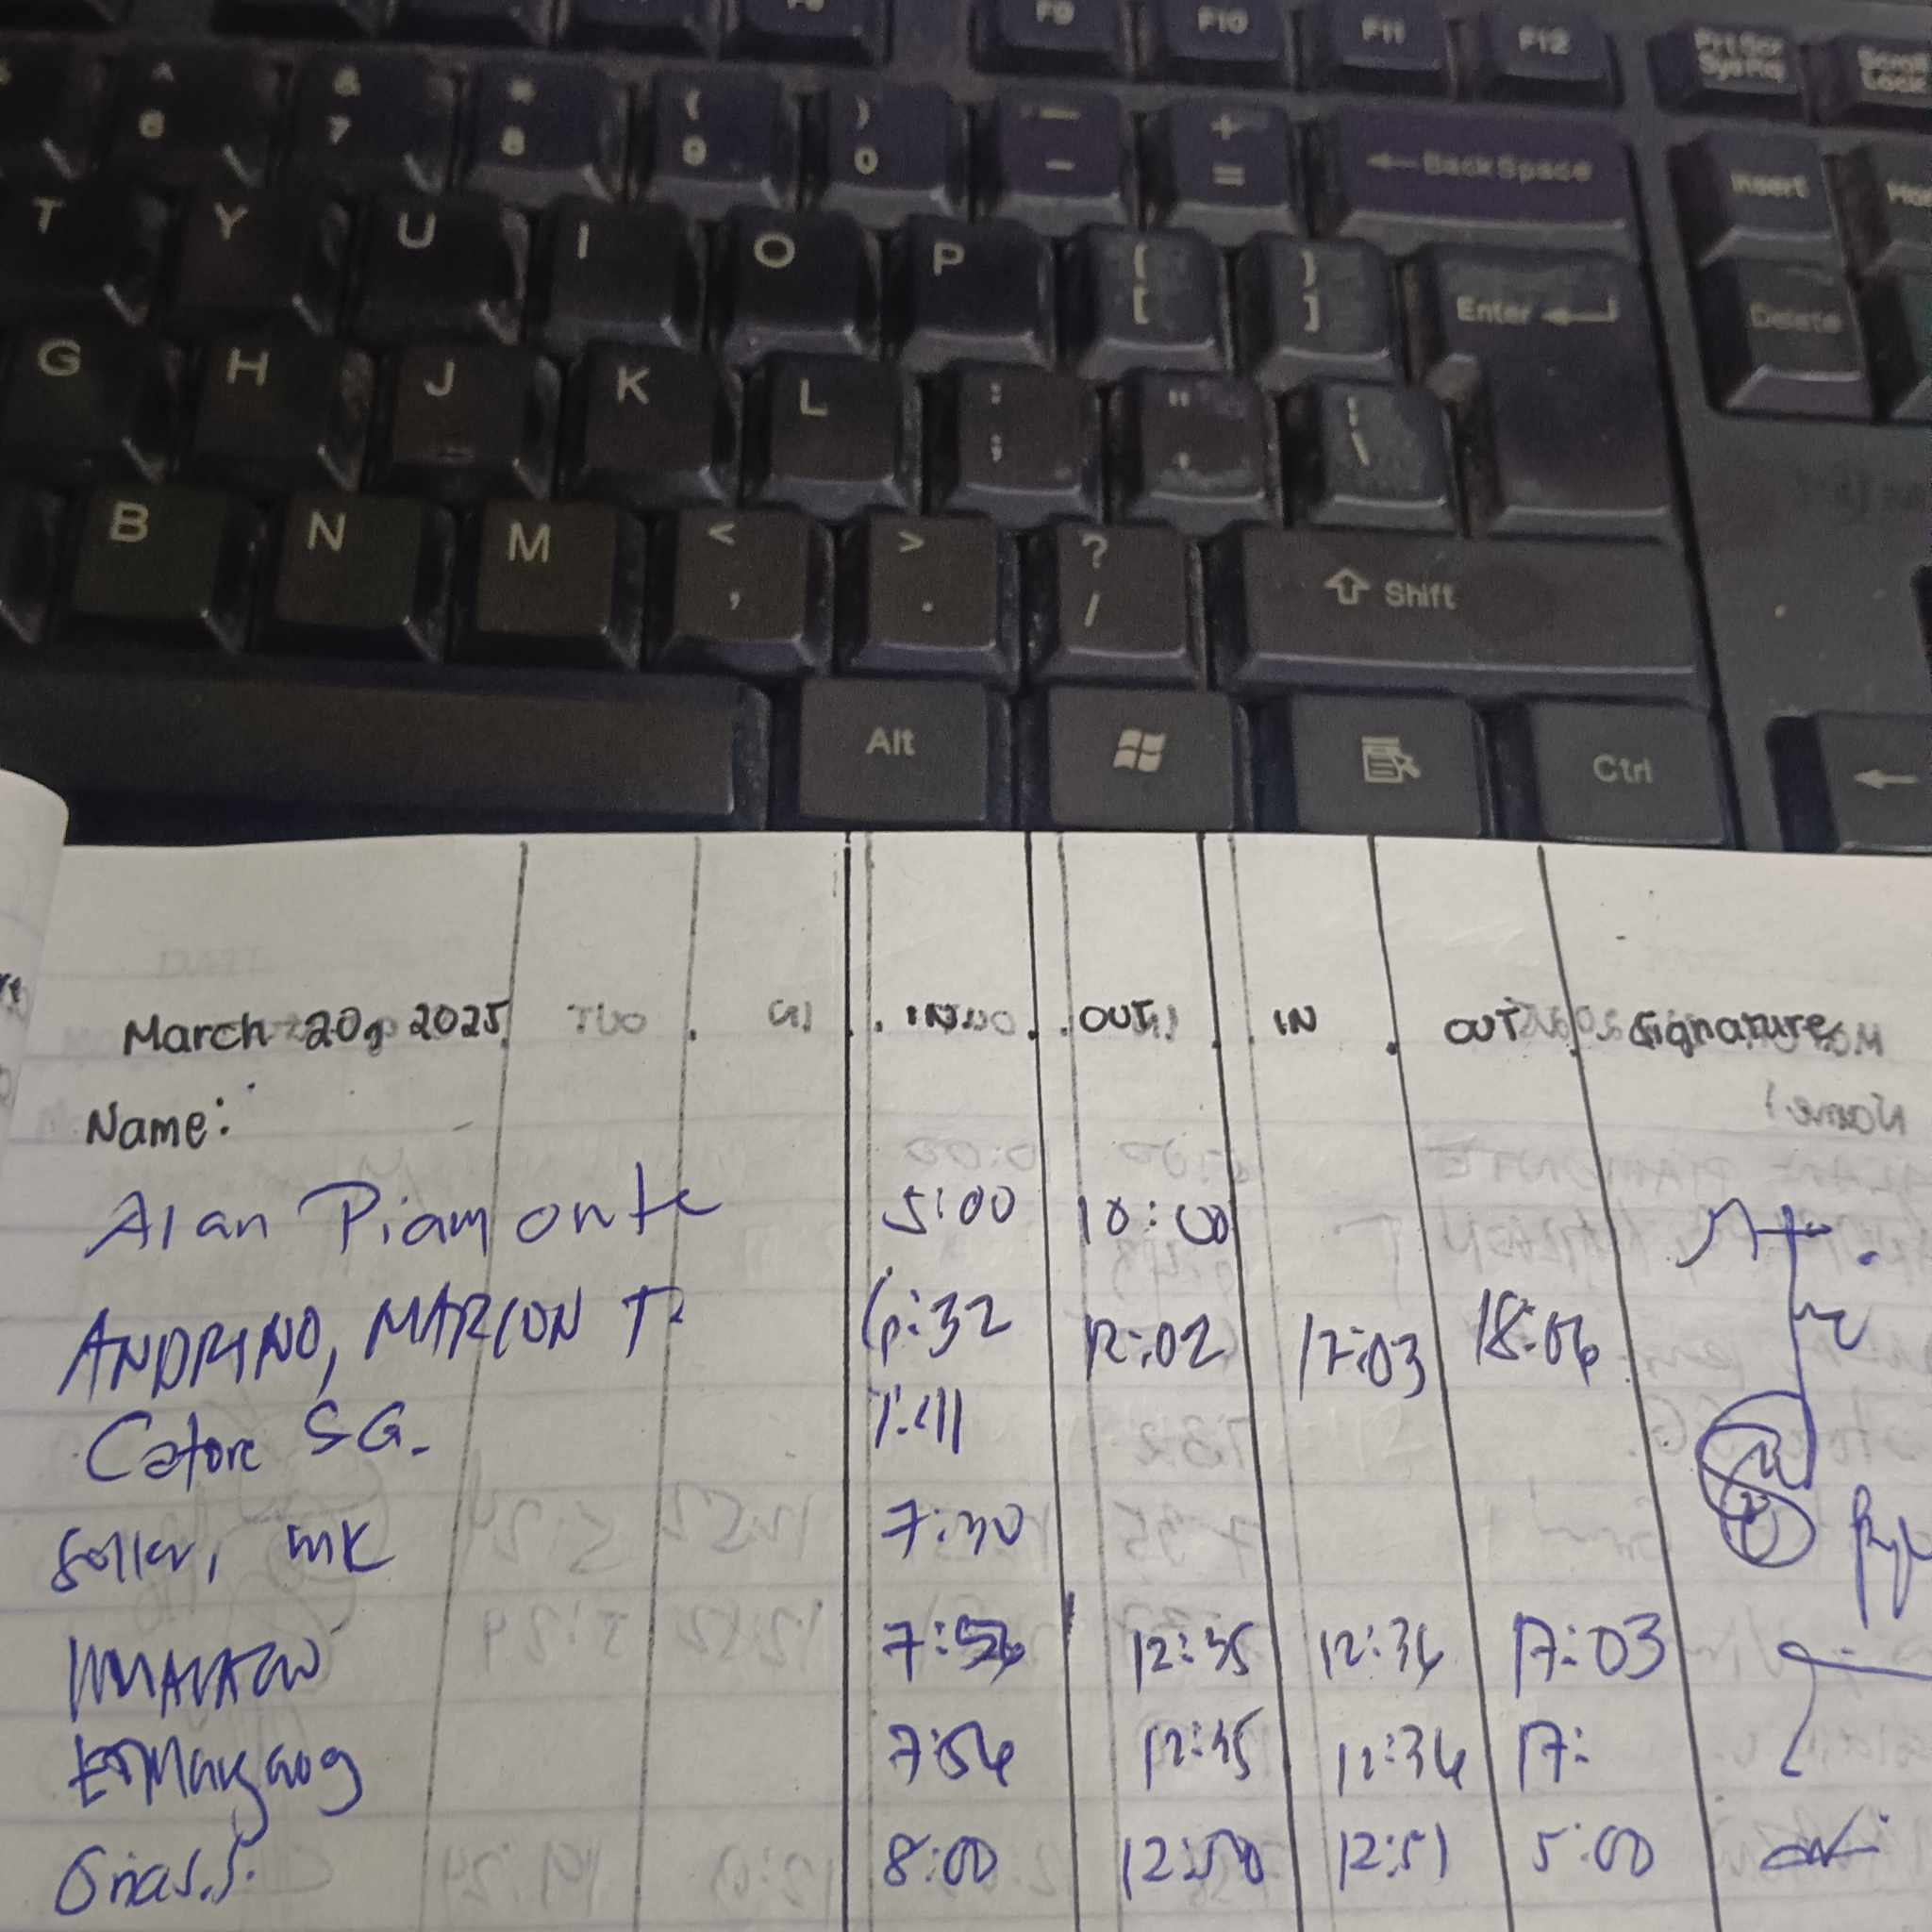 F9 F10 F11 F12 Prt Scr SysRq Scroll Lock
^ & * ( ) — +
6 7 8 9 0 - = ← Back Space Insert
T Y U I O P { [ } ] Enter Delete
G H J K L : ; " ' \
B N M < , > . ? / Shift
Alt Ctrl
March 20, 2025 IN OUT IN OUT Signature
Name:
Alan Piamonte 5:00 10:00
ANDRINO, MARION T. 6:32 12:02 17:03 18:06
Catore S.G. 7:11
Soller, mk 7:30
7:56 12:35 12:36 17:03
7:56 12:35 12:36 17:
8:00 12:50 12:51 5:00